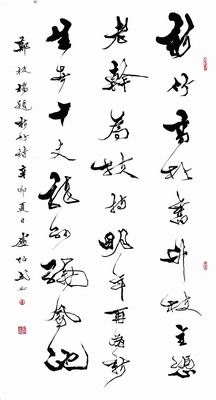 新竹高於舊竹枝全憑
老幹為扶持明年再有新
生者十丈龍孫繞鳳池
鄭板橋題新竹詩辛卯夏日